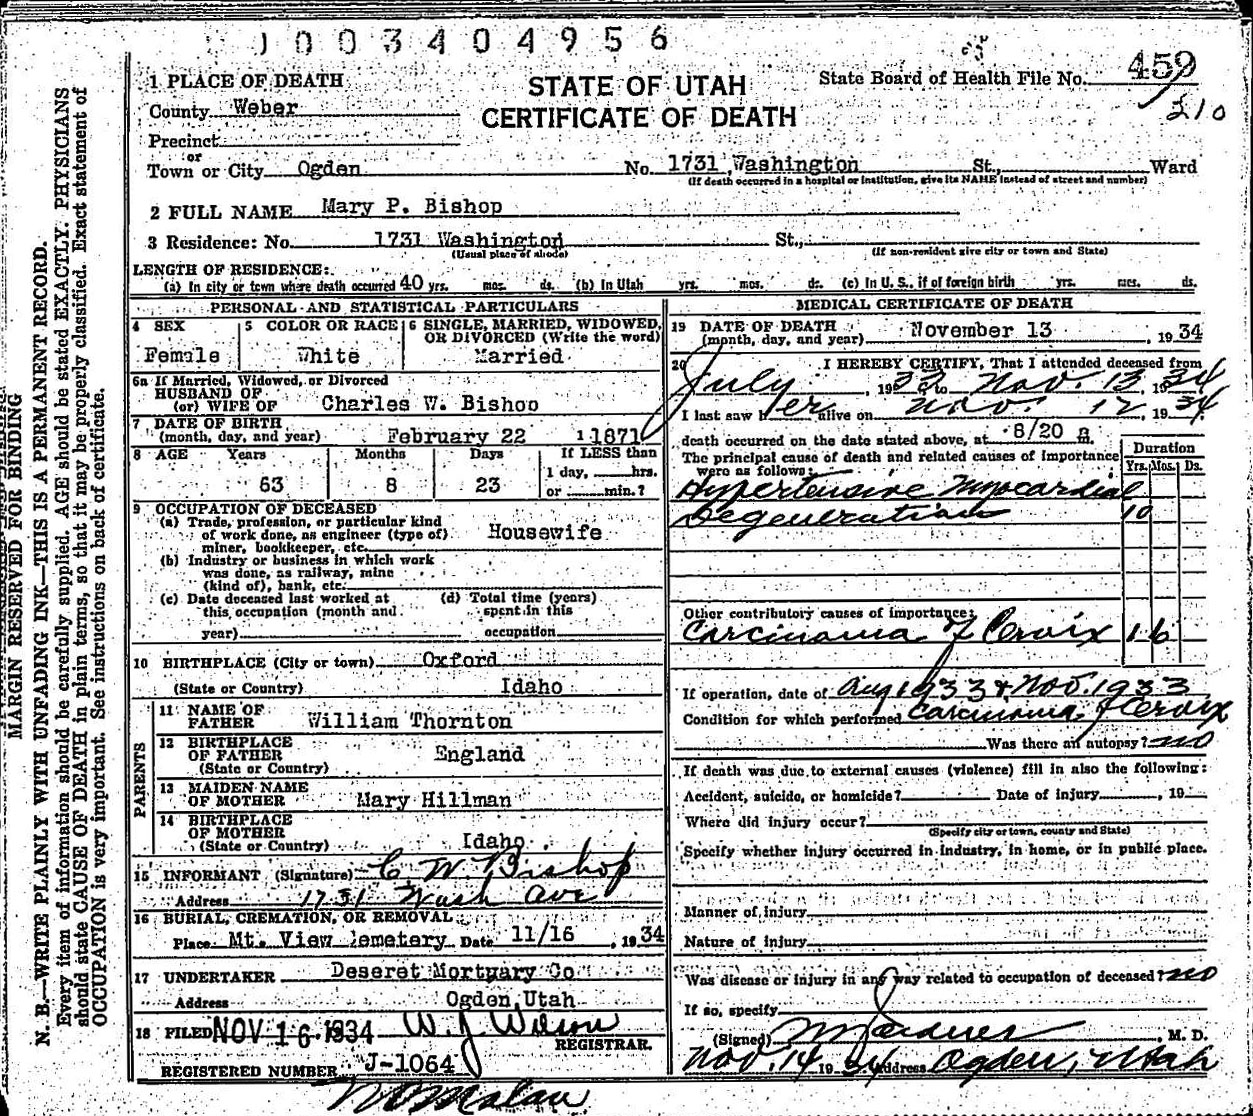 1003404956
1 PLACE OF DEATH
STATE OF UTAH
CERTIFICATE OF DEATH
State Board of Health File No. 459
210
County Weber
Precinct
or
Town or City Ogden No. 1731 Washington St., Ward
(If death occurred in a hospital or institution, give its NAME instead of street and number)
2 FULL NAME Mary P. Bishop
3 Residence: No. 1731 Washington St.,
(Usual place of abode) (If non-resident give city or town and State)
LENGTH OF RESIDENCE:
(a) In city or town where death occurred 40 yrs. mos. ds. (b) In Utah yrs. mos. ds. (c) In U. S., if of foreign birth yrs. mos. ds.
PERSONAL AND STATISTICAL PARTICULARS
4 SEX Female
5 COLOR OR RACE White
6 SINGLE, MARRIED, WIDOWED, OR DIVORCED (Write the word)
Married
6a If Married, Widowed, or Divorced
HUSBAND OF
(or) WIFE OF Charles W. Bishop
7 DATE OF BIRTH
(month, day, and year) February 22 1 1871
8 AGE Years Months Days If LESS than
1 day, hrs.
63 8 23 or min.?
9 OCCUPATION OF DECEASED
(a) Trade, profession, or particular kind
of work done, as engineer (type of) Housewife
miner, bookkeeper, etc.
(b) Industry or business in which work
was done, as railway, mine
(kind of), bank, etc.
(c) Date deceased last worked at (d) Total time (years)
this occupation (month and spent in this
year) occupation
10 BIRTHPLACE (City or town) Oxford
(State or Country) Idaho
PARENTS
11 NAME OF
FATHER William Thornton
12 BIRTHPLACE
OF FATHER England
(State or Country)
13 MAIDEN NAME
OF MOTHER Mary Hillman
14 BIRTHPLACE
OF MOTHER
(State or Country) Idaho
15 INFORMANT (Signature) C. W. Bishop
Address 1731 Wash Ave
16 BURIAL, CREMATION, OR REMOVAL
Place Mt. View Cemetery Date 11/16, 1934
17 UNDERTAKER Deseret Mortuary Co
Address Ogden, Utah
18 FILED NOV 16 1934 W J Wilson
REGISTRAR.
REGISTERED NUMBER J-1064
MEDICAL CERTIFICATE OF DEATH
19 DATE OF DEATH
(month, day, and year) November 13, 1934
20 I HEREBY CERTIFY, That I attended deceased from
July, 1932 to Nov. 13 1934
I last saw her alive on Nov. 12, 1934
death occurred on the date stated above, at 8/20 a m.
The principal cause of death and related causes of importance
were as follows:
Duration
Yrs. Mos. Ds.
Hypertensive Myocardial
Degeneration 10
Other contributory causes of importance:
Carcinoma of Cervix 1 6
If operation, date of Aug 1933 & Nov. 1933
Condition for which performed Carcinoma of Cervix
Was there an autopsy? no
If death was due to external causes (violence) fill in also the following:
Accident, suicide, or homicide? Date of injury, 19
Where did injury occur?
(Specify city or town, county and State)
Specify whether injury occurred in industry, in home, or in public place.
Manner of injury
Nature of injury
Was disease or injury in any way related to occupation of deceased? no
If so, specify
(Signed) Gardner, M. D.
Nov. 14 1934 Address Ogden, Utah
MARGIN RESERVED FOR BINDING
N. B.—WRITE PLAINLY WITH UNFADING INK—THIS IS A PERMANENT RECORD.
Every item of information should be carefully supplied. AGE should be stated EXACTLY. PHYSICIANS
should state CAUSE OF DEATH in plain terms, so that it may be properly classified. Exact statement of
OCCUPATION is very important. See instructions on back of certificate.